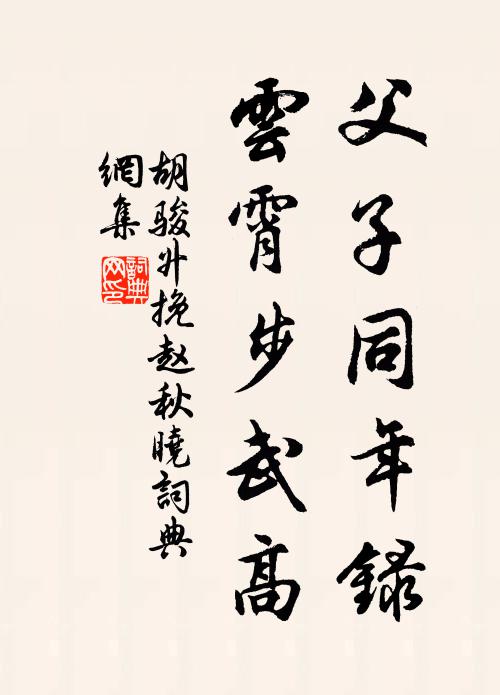 父子同年錄
雲霄步武高
胡駿升挽赵秋曉詞典
網集
詞典
网印